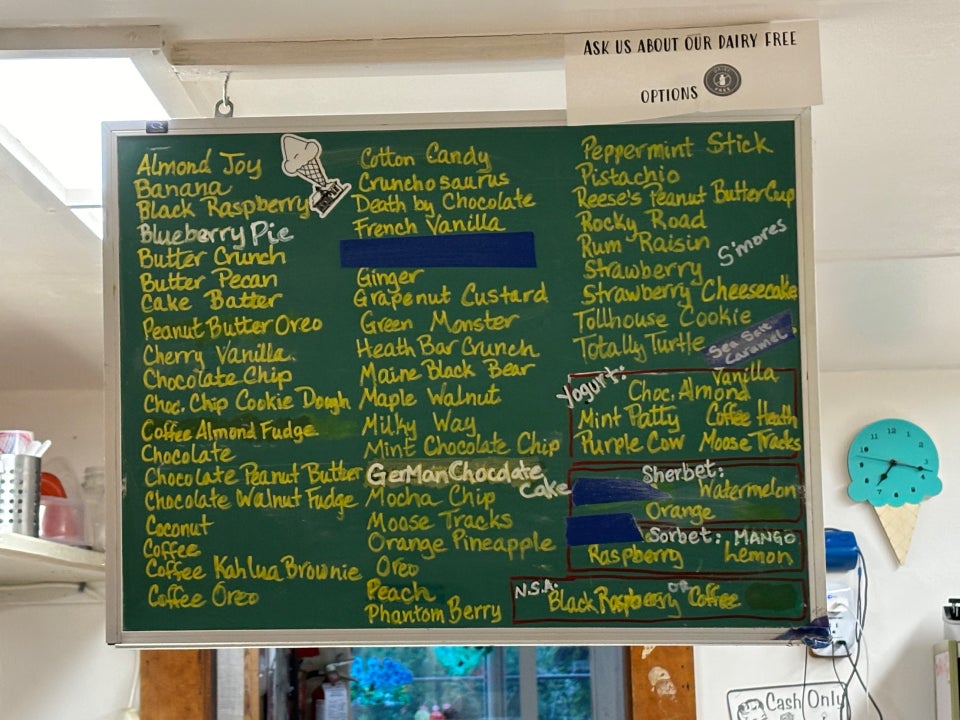 ASK US ABOUT OUR DAIRY FREE
OPTIONS
Almond Joy
Banana
Black Raspberry
Blueberry Pie
Butter Crunch
Butter Pecan
Cake Batter
Peanut Butter Oreo
Cherry Vanilla
Chocolate Chip
Choc. Chip Cookie Dough
Coffee Almond Fudge
Chocolate
Chocolate Peanut Butter
Chocolate Walnut Fudge
Coconut
Coffee
Coffee Kahlua Brownie
Coffee Oreo
Cotton Candy
Crunchosaurus
Death by Chocolate
French Vanilla
Ginger
Grapenut Custard
Green Monster
Heath Bar Crunch
Maine Black Bear
Maple Walnut
Milky Way
Mint Chocolate Chip
German Chocolate
Cake
Mocha Chip
Moose Tracks
Orange Pineapple
Oreo
Peach
Phantom Berry
Peppermint Stick
Pistachio
Reese's Peanut Butter Cup
Rocky Road
Rum Raisin
S'mores
Strawberry
Strawberry Cheesecake
Tollhouse Cookie
Totally Turtle
Sea Salt
Caramel
Yogurt:
Vanilla
Choc. Almond
Mint Patty Coffee Heath
Purple Cow Moose Tracks
Sherbet:
Watermelon
Orange
Sorbet: MANGO
Raspberry Lemon
N.S.A.:
Black Raspberry or Coffee
12
1
2
3
4
5
6
7
8
9
10
11
Cash Only